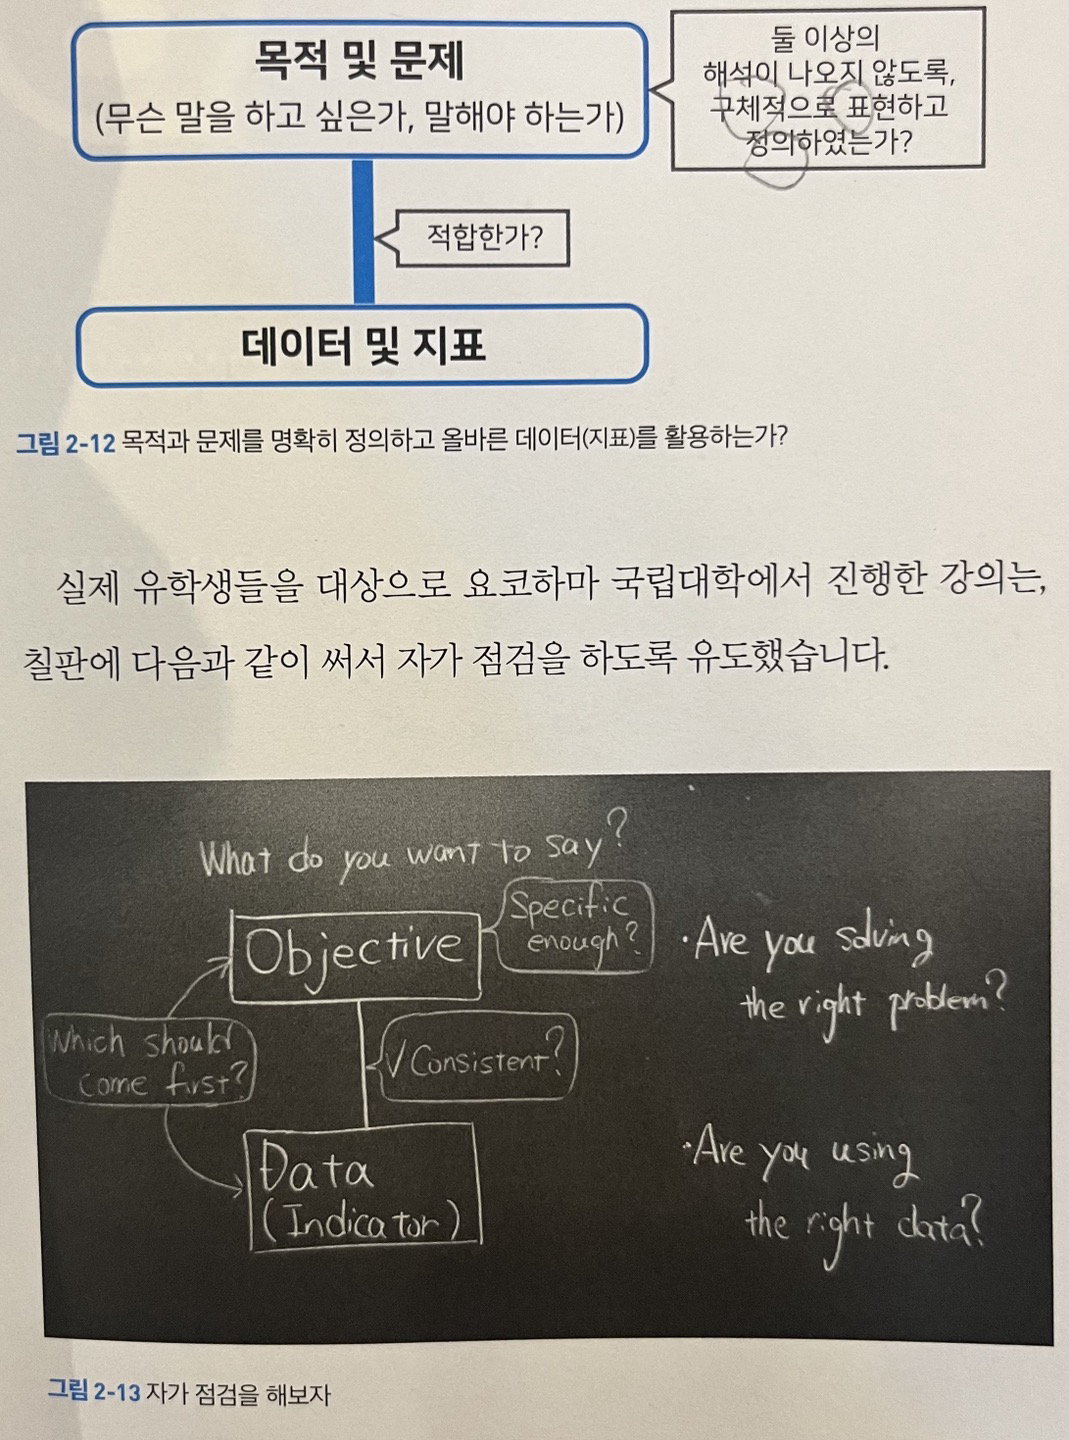 목적 및 문제
(무슨 말을 하고 싶은가, 말해야 하는가)
둘 이상의
해석이 나오지 않도록,
구체적으로 표현하고
정의하였는가?
적합한가?
데이터 및 지표
그림 2-12 목적과 문제를 명확히 정의하고 올바른 데이터(지표)를 활용하는가?
실제 유학생들을 대상으로 요코하마 국립대학에서 진행한 강의는,
칠판에 다음과 같이 써서 자가 점검을 하도록 유도했습니다.
What do you want to say?
Objective
Specific
enough?
Which should
come first?
√ Consistent?
Data
(Indicator)
·Are you solving
the right problem?
·Are you using
the right data?
그림 2-13 자가 점검을 해보자